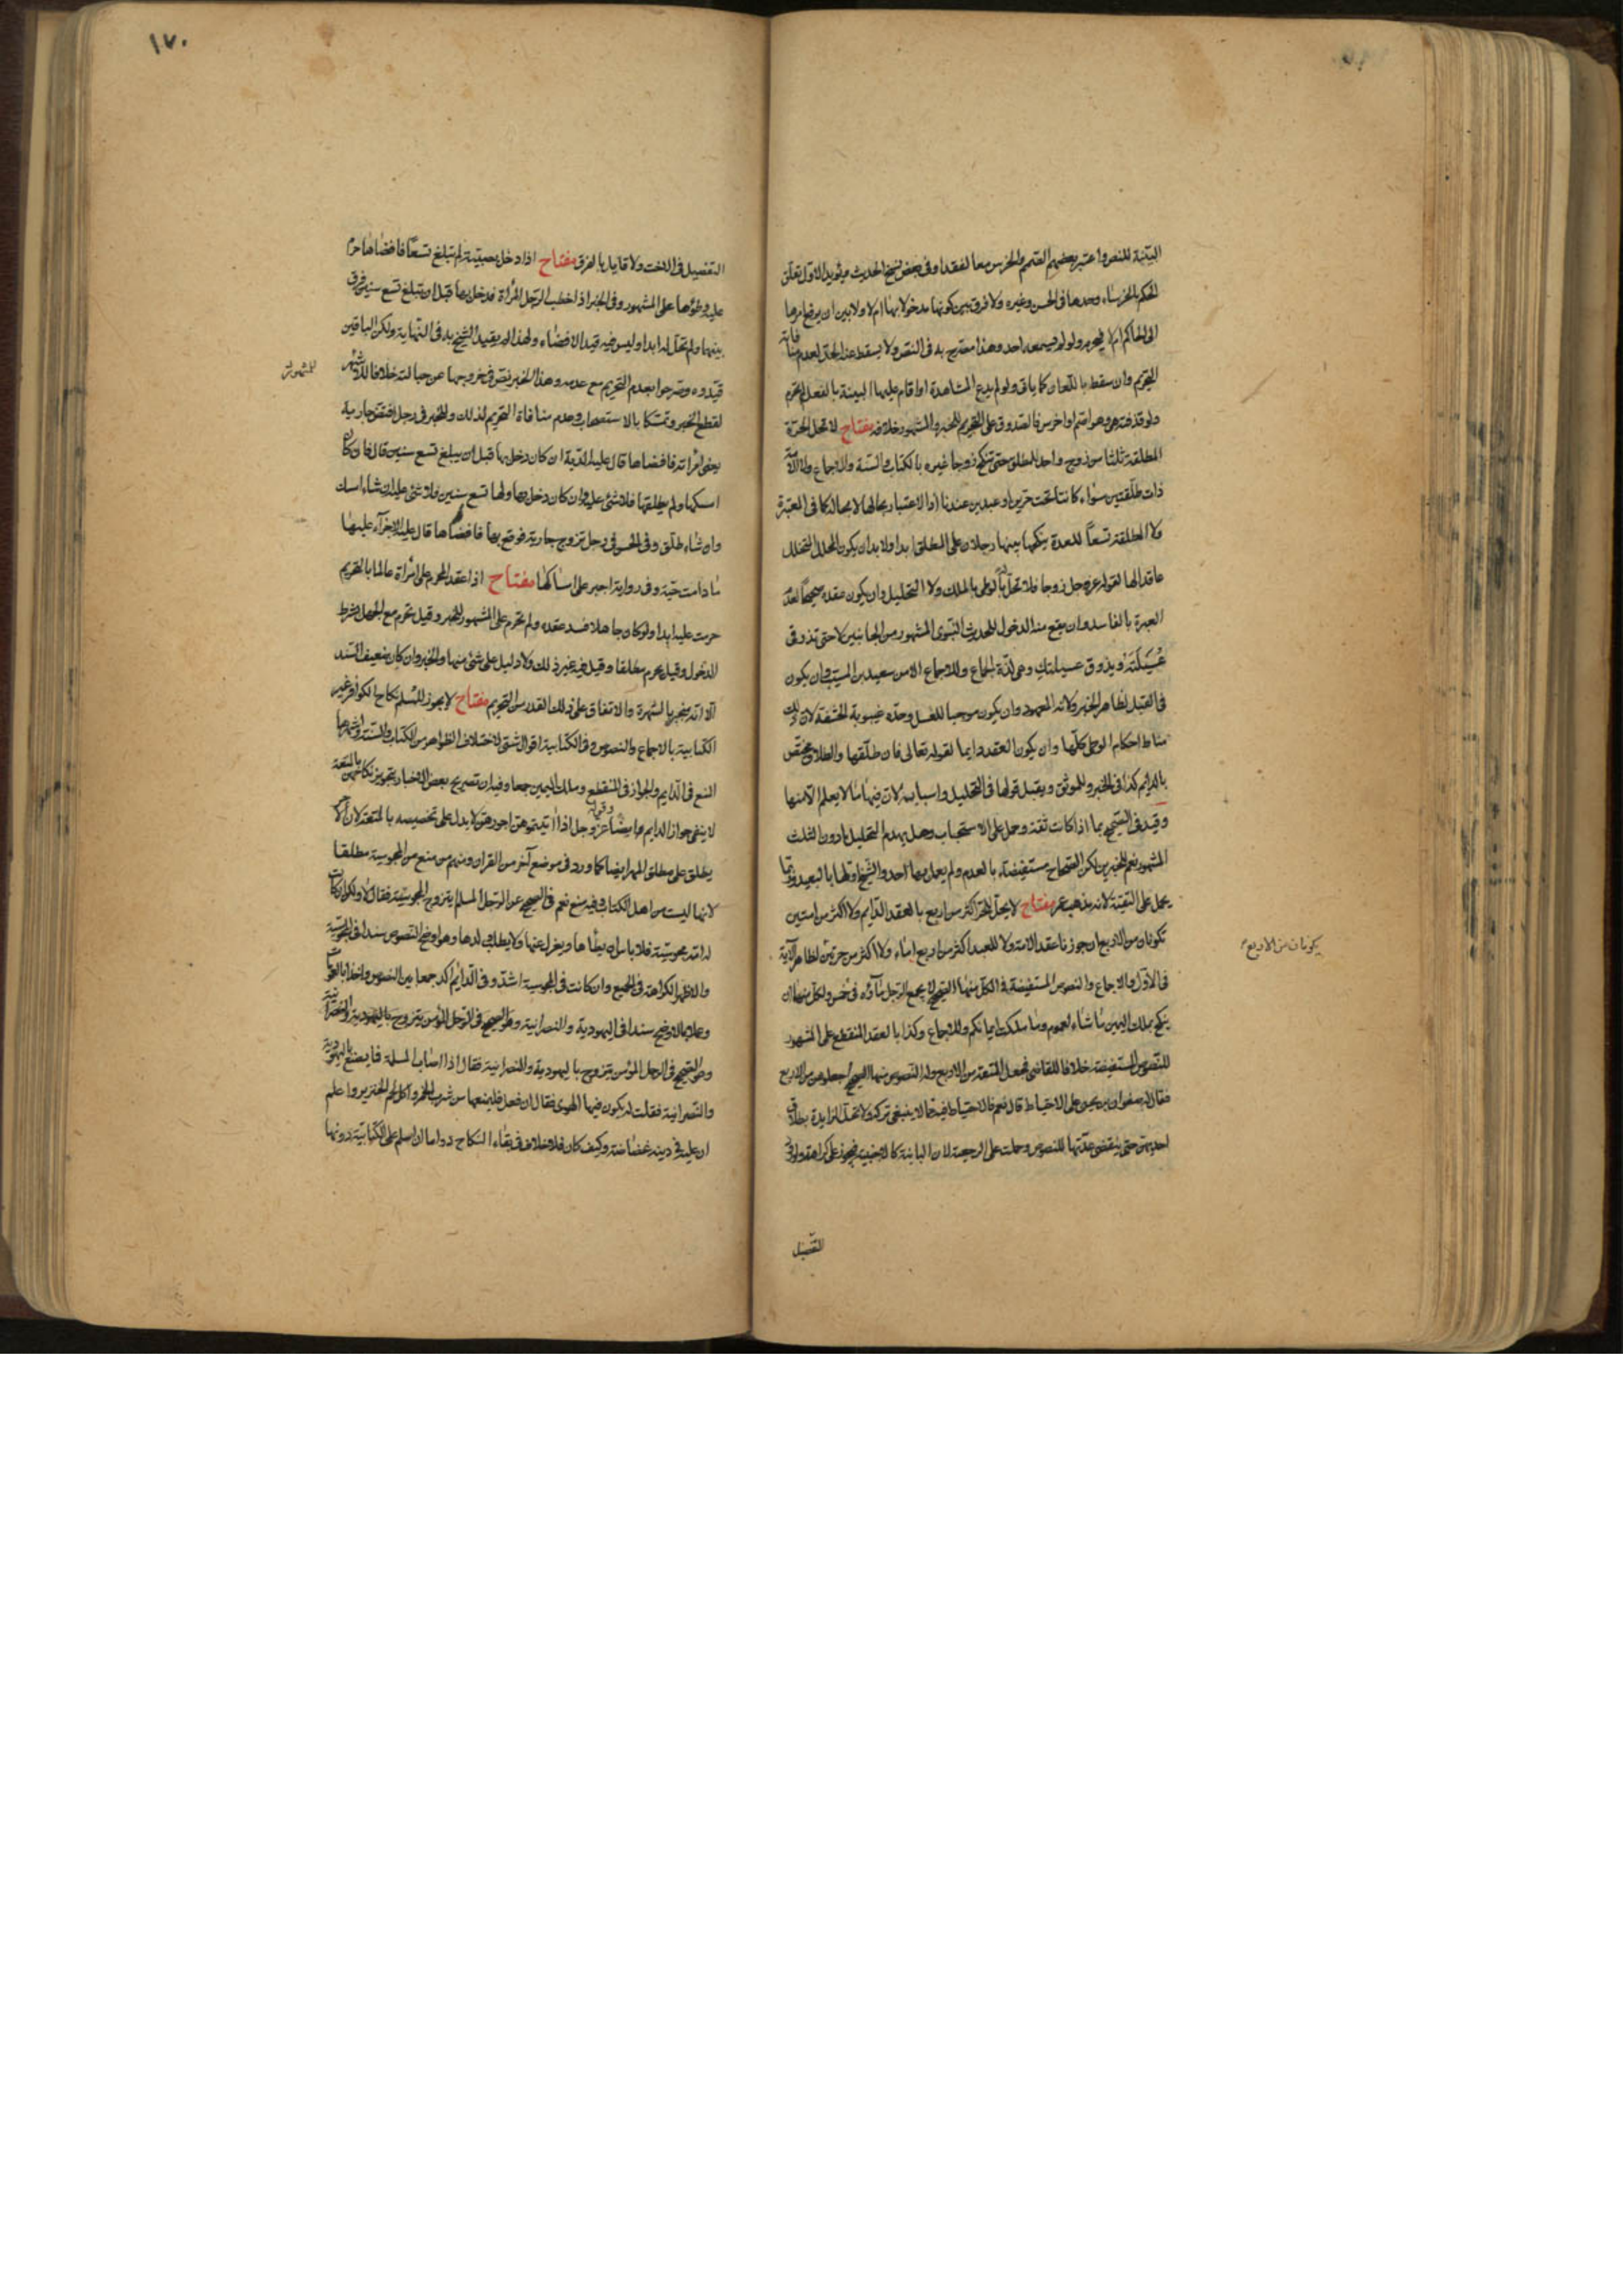 البينة للنص واعتبر بعضهم الصمم والخرس معا لفقدا وفي بعض نسخ الحديث ويؤيد الاول تعلق
الحكم بالخرساء وحدها في الحسن وغيره ولا فرق بين كونها مدخولا بها ام لا ولا بين ان يرفع امرها
الى الحاكم ام لا فيحرم ولو لم يسمعه احد وهذا مصرح به في النص ولا يسقط عنه الحد لعدم منافاته
التحريم وان سقط باللعان كما ياتي ولو لم يدع المشاهدة او اقام عليها البينة بالفعل لم تحرم
ولو قذفته هي وهو اصم او اخرس فالصدوق على التحريم للخبر والمشهور خلافه مفتاح لا تحل الحرة
المطلقة ثلثا من زوج واحد للمطلق حتى تنكح زوجا غيره بالكتاب والسنة والاجماع ولا الامة
ذات طلقتين سواء كانتا تحت حرين او عبدين عندنا اذ الاعتبار بحالها لا بحاله كما في المعتبرة
ولا المطلقة تسعا للعدة ينكحها بينها رجلان على المطلق ابدا ولا بد ان يكون المحلل المتخلل
عاقدا لها لقوله عز وجل زوجا فلا تحل بالوطي بالملك ولا التحليل وان يكون عقده صحيحا لعدم
العبرة بالفاسد وان يقع منه الدخول للحديث النبوي المشهور من الجانبين لا حتى تذوقي
عُسَيْلَتَهُ ويذوق عسيلتك وهي لذة الجماع وللاجماع الا من سعيد بن المسيب وان يكون
في القبل لظاهر الخبر ولانه المعهود وان يكون موجبا للغسل وحده غيبوبة الحشفة لان ذلك
مناط احكام الوطي كلها وان يكون العقد دايما لقوله تعالى فان طلقها والطلاق مختص
بالدايم كذا في الخبر والموثق ويقبل قولها في التحليل واسبابه لان فيها ما لا يعلم الا منها
وقيد في الصحيح بما اذا كانت ثقة وحمل على الاستحباب وهل يهدم التحليل ما دون الثلث
المشهور نعم للخبرين لكن الصحاح مستفيضة بالعدم ولم يعمل بها احد والشيخ اولها بالبعيد وربما
يحمل على التقية لانه مذهب عمر مفتاح لا يحل للحر اكثر من اربع بالعقد الدايم ولا اكثر من امتين
تكونان من الاربع ان جوزنا عقد الامة ولا للعبد اكثر من اربع اماء ولا اكثر من حرتين لظاهر الآية
في الاول والاجماع والنصوص المستفيضة في الكل منها الصحيح لا يجمع الرجل ماؤه في خمس ولكل منهما ان
ينكح بملك اليمين ما شاء لعموم وما ملكت ايمانكم وللاجماع وكذا بالعقد المنقطع على المشهور
للنصوص المستفيضة خلافا للقاضي فجعل المتعة من الاربع وله النصوص منها الصحيح اجعلوهن من الاربع
فقال له صفوان بن يحيى على الاحتياط قال نعم فالاحتياط فيه مما لا ينبغي تركه ولا تحل الزايدة بطلاق
احديهن حتى ينقضي عدتها للنصوص وحملت على الرجعية لان الباينة كالاجنبية فيجوز على كراهة ولو
التفصيل
يكونان من الاربع
١٧٠
التفصيل في الاخت ولا قايل بالفرق مفتاح اذا دخل بصبية لم تبلغ تسعا فافضاها حرم
عليه وطؤها على المشهور وفي الخبر اذا خطب الرجل المرأة فدخل بها قبل ان تبلغ تسع سنين فرق
بينهما ولم تحل له ابدا وليس فيه قيد الافضاء ولهذا لم يقيد الشيخ به في النهاية ولكن الباقين
قيدوه وصرحوا بعدم التحريم مع عدمه وهذا الخبر نص في خروجها عن حباله خلافا للاشهر
للمشهور
لقطع الخبر وتمسكا بالاستصحاب وعدم منافاة التحريم لذلك وللخبر في رجل افتض جارية
يعني امرأته فافضاها قال عليه الدية ان كان دخل بها قبل ان يبلغ تسع سنين قال فان كان
امسكها ولم يطلقها فلا شئ عليه وان كان دخل بها ولها تسع سنين فلا شئ عليه ان شاء امسك
وان شاء طلق وفي الحسن في رجل تزوج جارية فوقع بها فافضاها قال عليه الاجراء عليها
ما دامت حية وفي رواية اجبر على امساكها مفتاح اذا عقد المحرم على امرأة عالما بالتحريم
حرمت عليه ابدا ولو كان جاهلا فسد عقده ولم تحرم على المشهور للخبر وقيل تحرم مع الجهل بشرط
الدخول وقيل يحرم مطلقا وقيل فيه غير ذلك ولا دليل على شئ منها والخبر وان كان ضعيف السند
الا انه منجبر بالشهرة والاتفاق على ذلك القدر من التحريم مفتاح لا يجوز للمسلم نكاح الكوافر غير
الكتابية بالاجماع والنصوص وفي الكتابية اقوال شتى لاختلاف الظواهر من الكتاب والسنة واشهرها
المنع في الدايم والجواز في المنقطع وملك اليمين جمعا وفيه ان تصريح بعض الاخبار بتجويز نكاحهن بالمتعة
لا ينفي جواز الدايم عما يضا وقوله عز وجل اذا آتيتموهن اجورهن لا يدل على تخصيصه بالمتعة لان الاجر
يطلق على مطلق المهر ايضا كما ورد في موضع آخر من القرآن ومنهم من منع من المجوسية مطلقا
لانها ليست من اهل الكتاب وفيه منع نعم في الصحيح عن الرجل المسلم يتزوج المجوسية فقال لا ولكن ان كانت
له امة مجوسية فلا باس ان يطأها ويعزل عنها ولا يطلب ولدها وهو اوضح النصوص سندا في المجوسية
والاظهر الكراهة في الجميع وان كانت في المجوسية اشد وفي الدائم آكد جمعا بين النصوص واخذا بالعمومات
وعملا بالاوضح سندا في اليهودية والنصرانية وهو الصحيح في الرجل المؤمن يتزوج باليهودية والنصرانية
وهو الصحيح في الرجل المؤمن يتزوج باليهودية والنصرانية فقال اذا اصاب المسلمة فما يصنع باليهودية
والنصرانية فقلت له يكون فيها الهوى فقال ان فعل فليمنعها من شرب الخمر واكل لحم الخنزير واعلم
ان عليه في دينه غضاضة وكيف كان فلا خلاف في بقاء النكاح دواما ان اسلم على الكتابية دونها